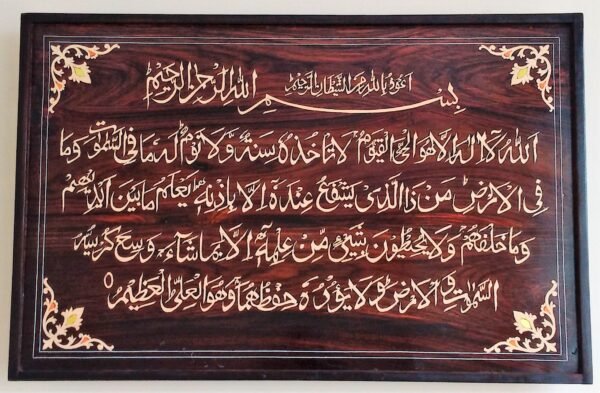 اعوذ بالله من الشيطان الرجيم
بسم الله الرحمن الرحيم
الله لا اله الا هو الحي القيوم لا تاخذه سنة ولا نوم له ما في السموت وما
في الارض من ذا الذي يشفع عنده الا باذنه يعلم ما بين ايديهم
وما خلفهم ولا يحيطون بشيئ من علمه الا بما شاء وسع كرسيه
السموت والارض ولا يؤده حفظهما وهو العلي العظيم